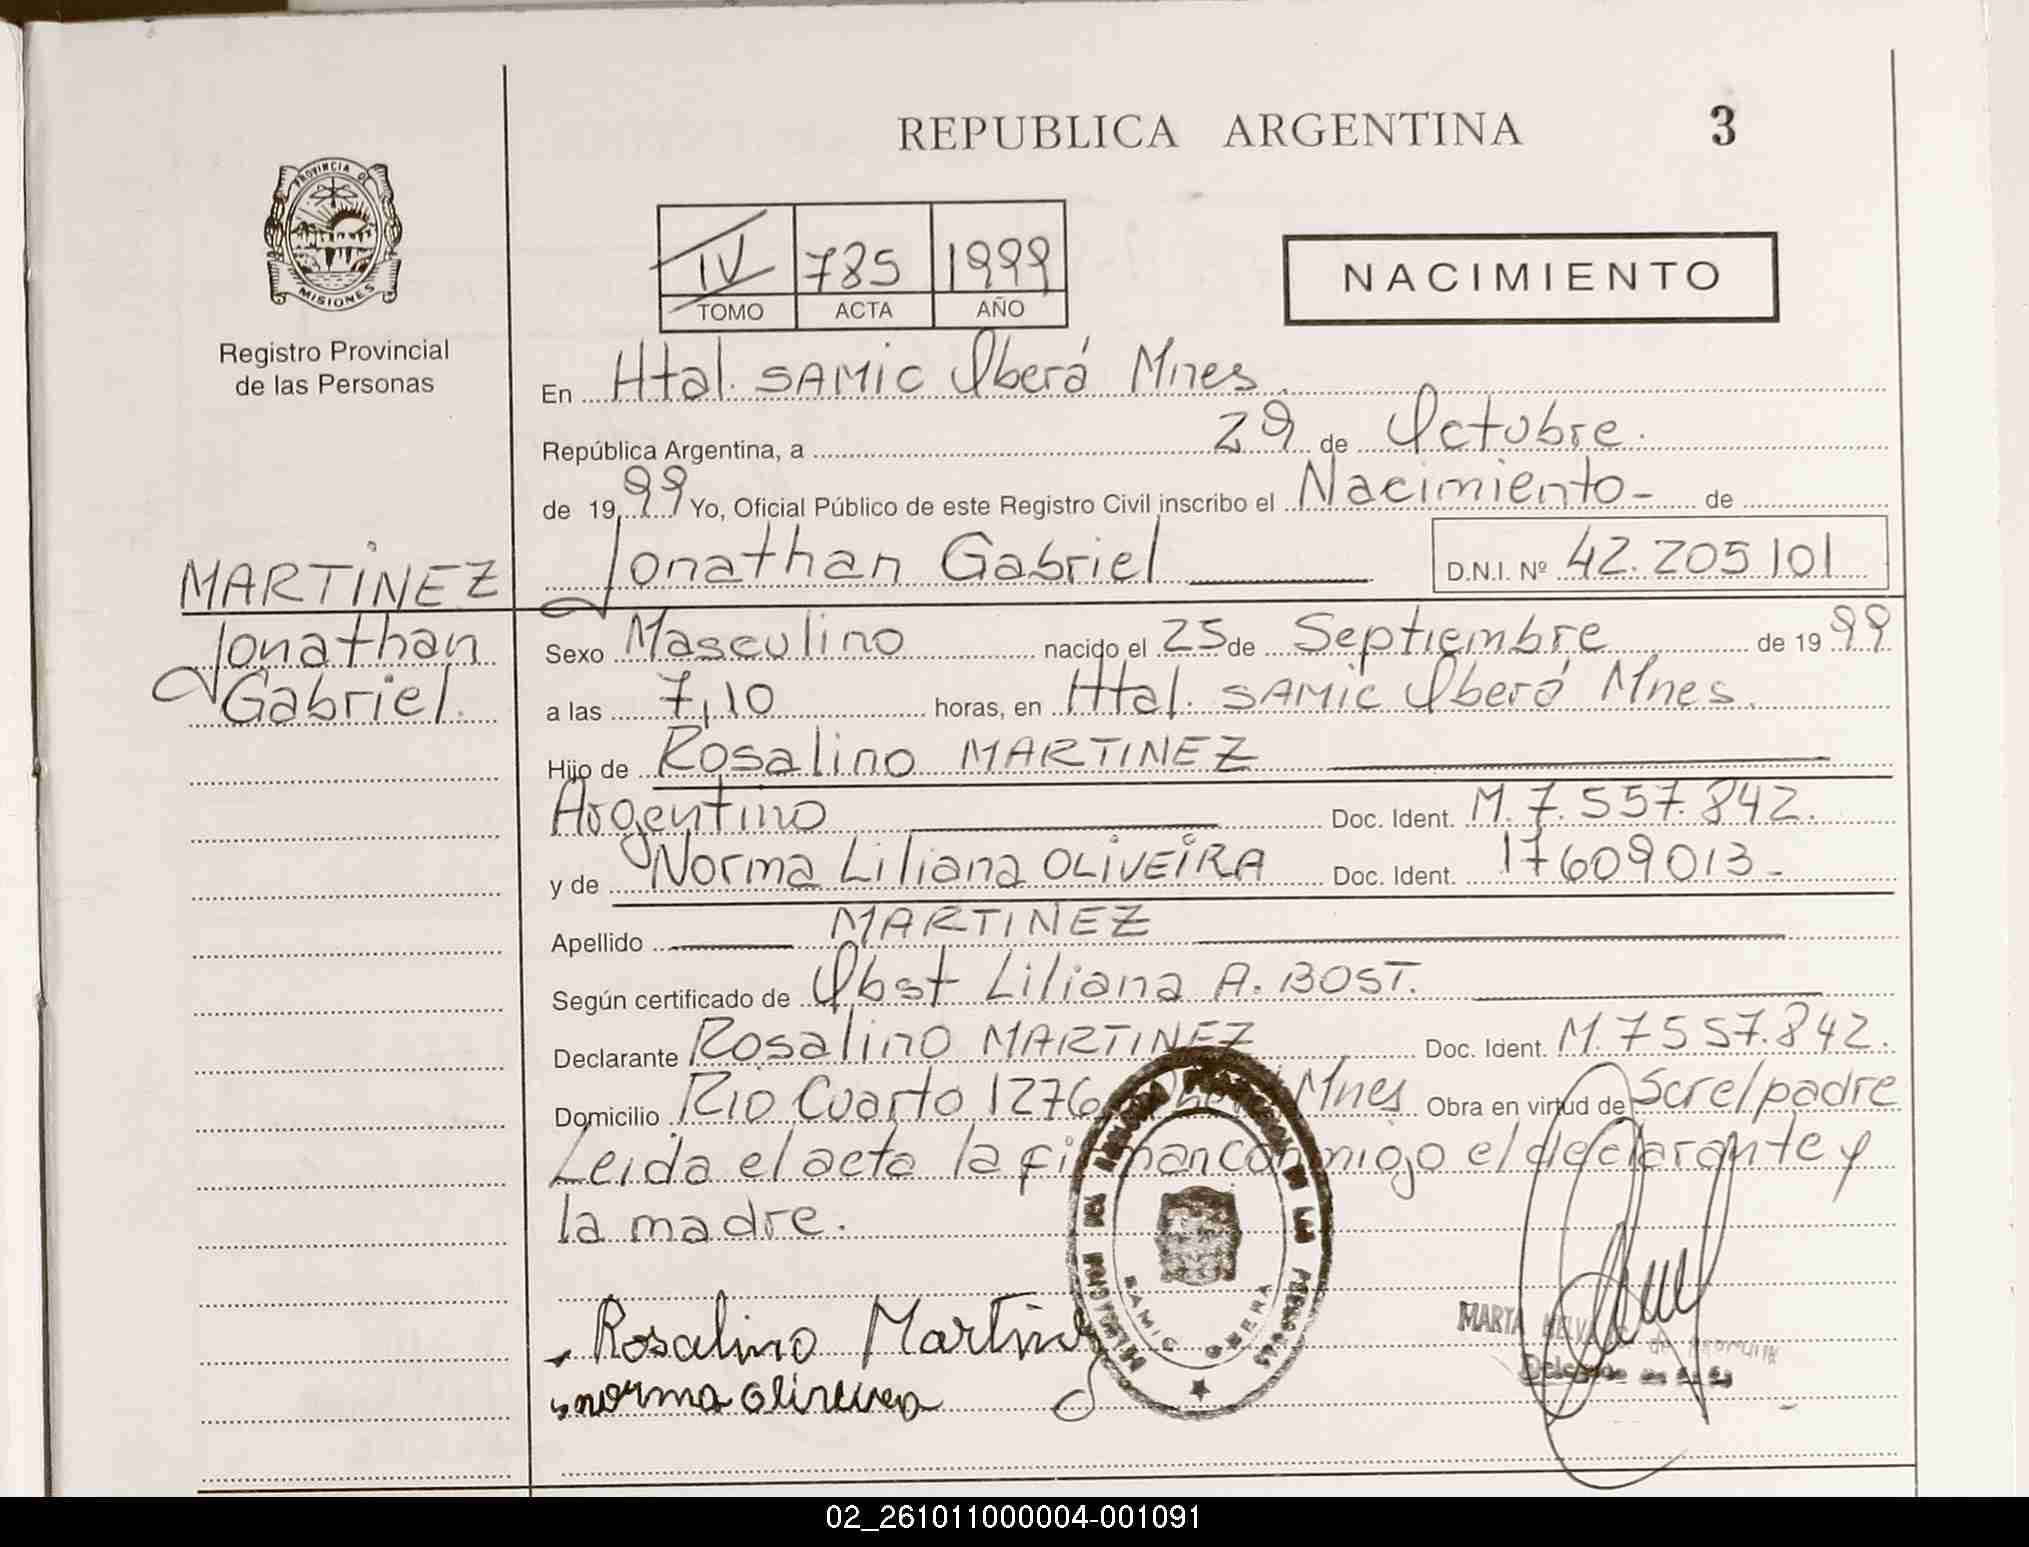 REPUBLICA ARGENTINA 3
PROVINCIA DE
MISIONES
Registro Provincial
de las Personas
IV 785 1999
TOMO ACTA AÑO
NACIMIENTO
En Htal. SAMIC Oberá Mnes.
República Argentina, a 29 de Octubre.
de 1999 Yo, Oficial Público de este Registro Civil inscribo el Nacimiento - de
MARTINEZ
Jonathan
Gabriel.
Jonathan Gabriel D.N.I. Nº 42.205101
Sexo Masculino nacido el 25 de Septiembre de 1999
a las 7,10 horas, en Htal. SAMIC Oberá Mnes.
Hijo de Rosalino MARTINEZ
Argentino Doc. Ident. M.7.557.842.
y de Norma Liliana OLIVEIRA Doc. Ident. 17609013-
Apellido MARTINEZ
Según certificado de Obst Liliana A. BOST.
Declarante Rosalino MARTINEZ Doc. Ident. M.7557.842.
Domicilio Rio Cuarto 1276 Mnes Obra en virtud de Screl padre
Leida el acta la firman conmigo el declarante y
la madre.
Rosalino Martinez
norma oliveira
DE LAS PERSONAS
SAMIC OBERA
MARTA
02_261011000004-001091